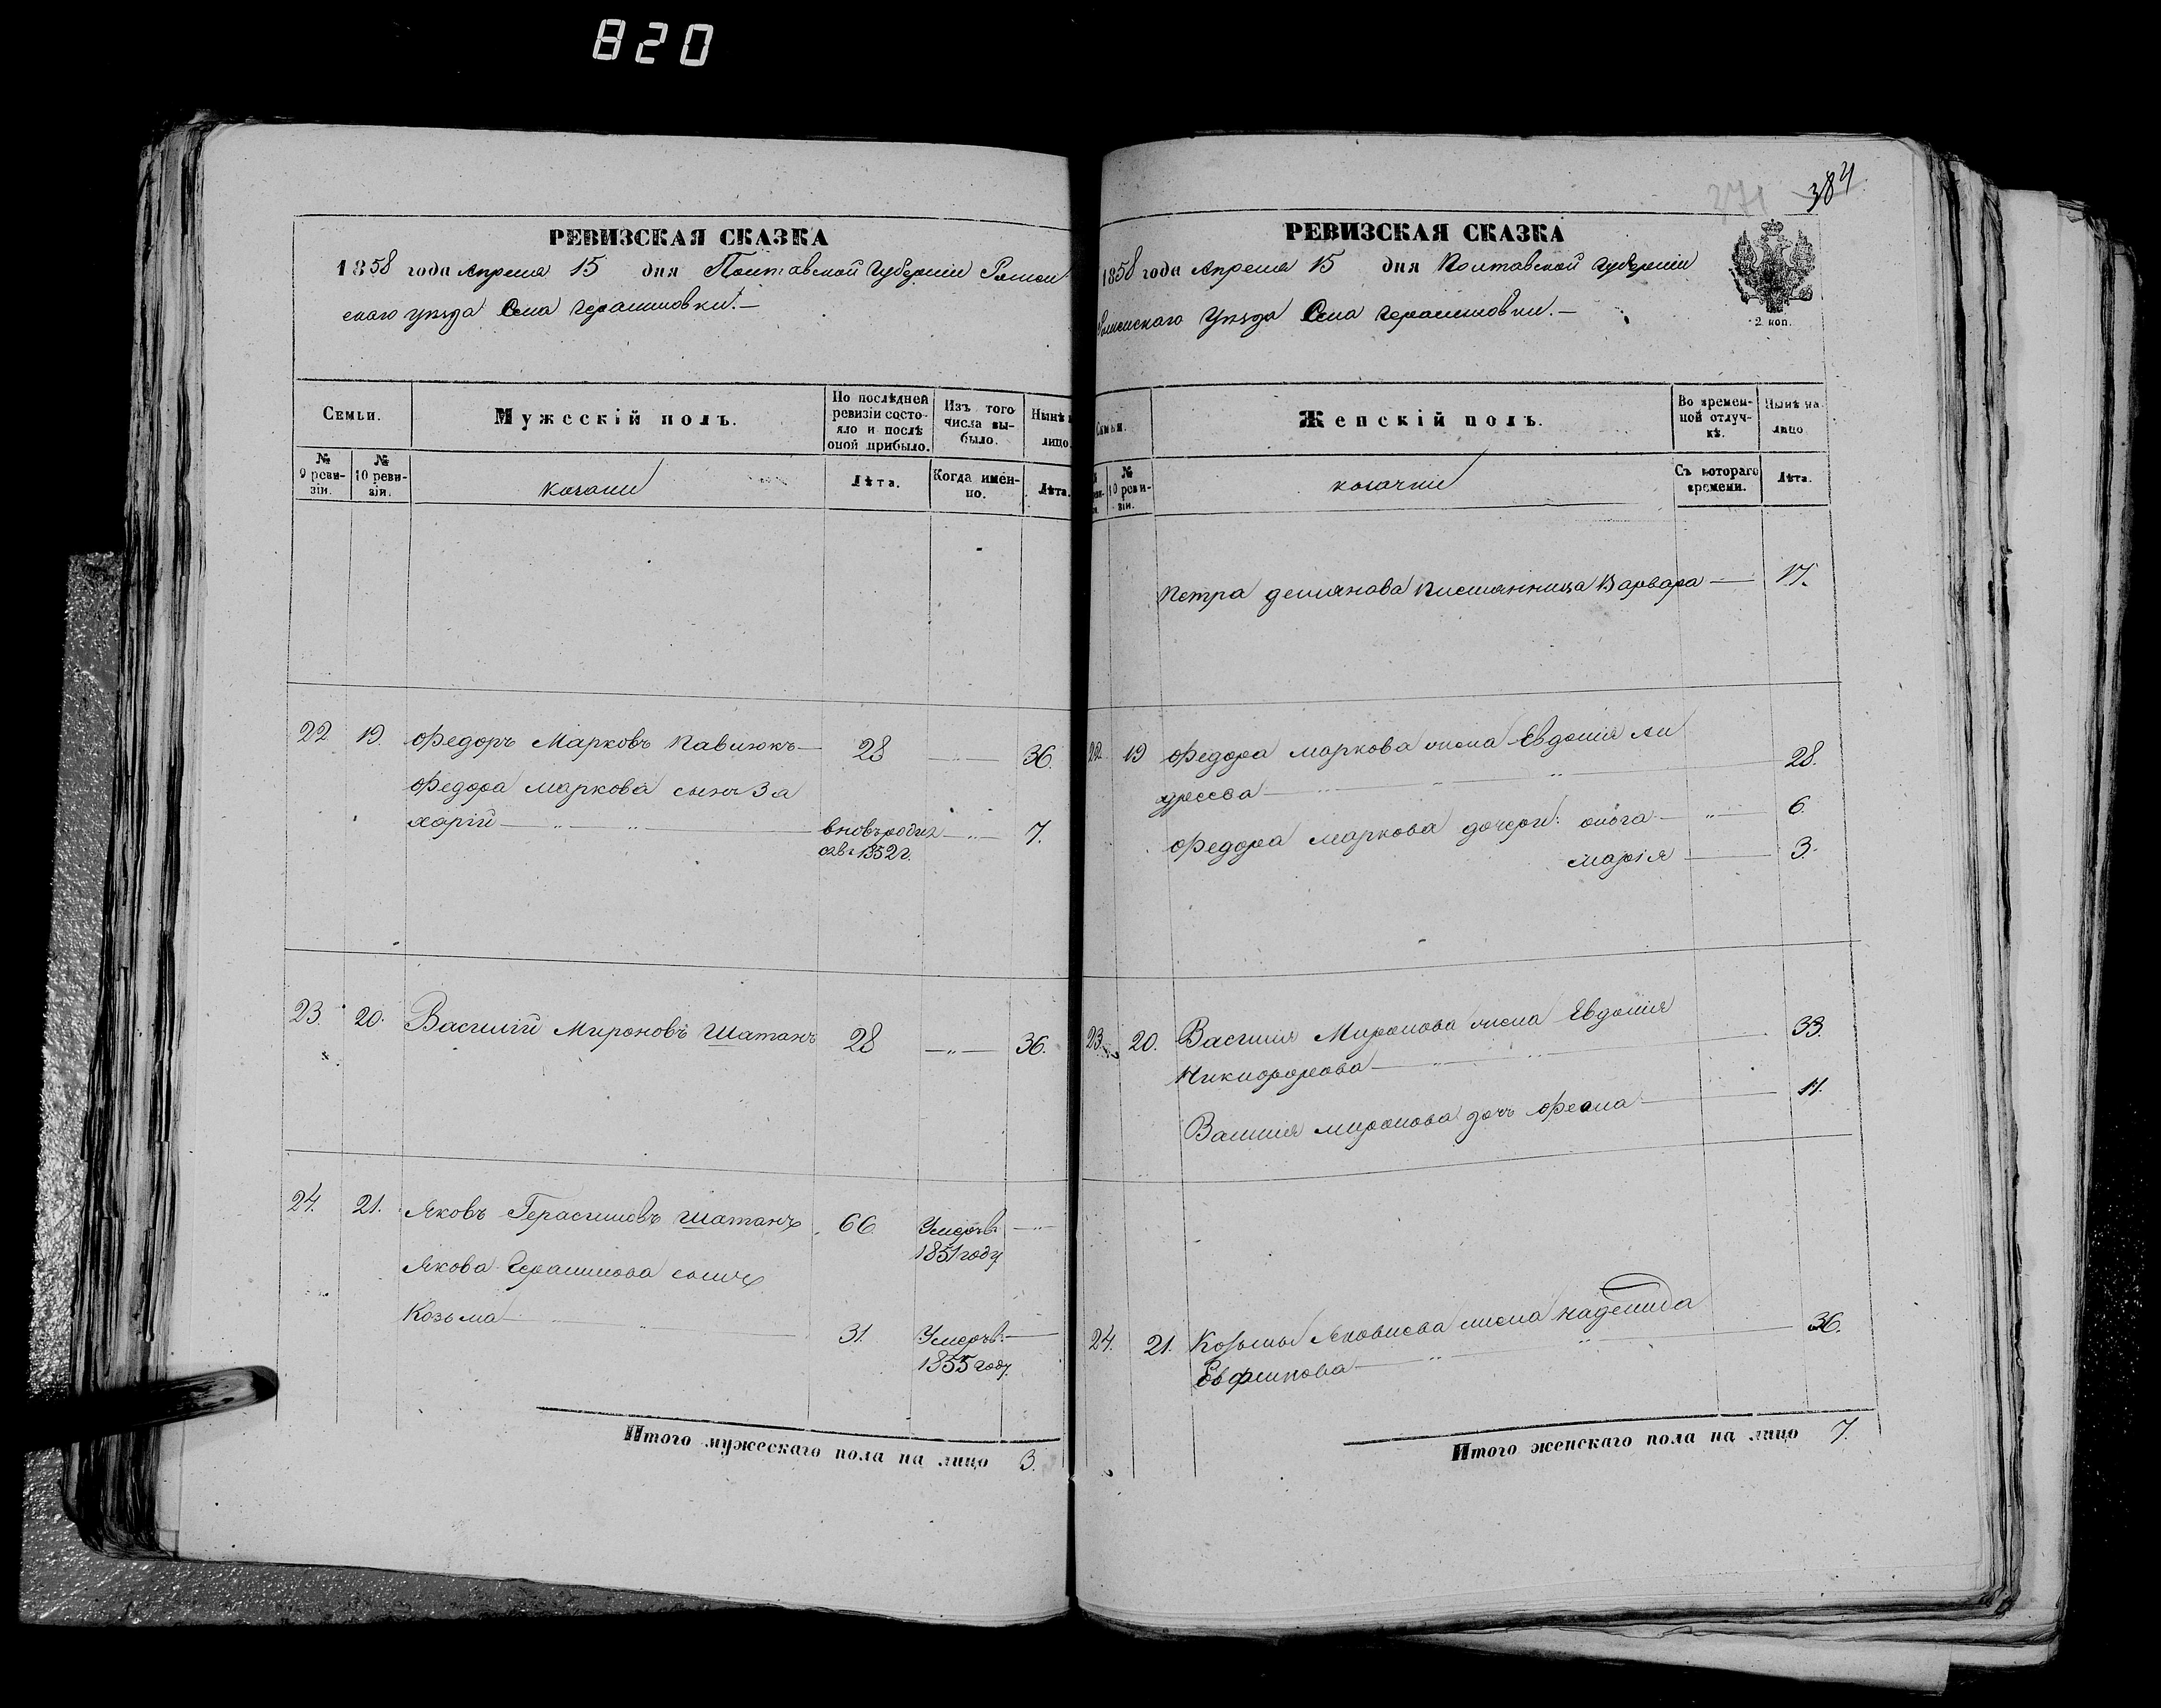 820
РЕВИЗСКАЯ СКАЗКА
1858 года Апреля 15 дня Полтавской Губернии Ромен
скаго уезда Села Герасимовки.—
Семьи.
Мужескій полъ.
По послѣдней ревизіи состояло и послѣ оной прибыло.
Изъ того числа выбыло.
Нынѣ
лицо.
№ 9 ревизіи.
№ 10 ревизіи.
козаки
Лѣта.
Когда именно.
Лѣта.
22 19. Федоръ Марковъ Павлюкъ— 28 —„— 36.
Федора Маркова сынъ За
харій —„—„— вновь родил
ся в 1852 г. —„— 7.
23. 20. Василій Мироновъ Шатанъ 28 —„— 36.
24. 21. Яковъ Герасимовъ Шатанъ 66 Умеръ в
1851 году —„—
Якова Герасимова сынъ
Козьма — „ — 31. Умеръ в
1855 году. —
Итого мужескаго пола на лицо 3.
271 384
РЕВИЗСКАЯ СКАЗКА
1858 года Апреля 15 дня Полтавской Губерніи
Роменскаго Уезда Села Герасимовки.—
2 коп.
Семьи.
Женскій полъ.
Во временной отлучкѣ.
Нынѣ на лицо
№ 10 ревизіи.
козачки
Съ котораго времени.
Лѣта.
Петра Демянова племянница Варвара — 17.
22 19 Федора Маркова жена Евдокія Ан
дреева —„—„— 28.
Федора Маркова дочери: Ольга —„— 6.
Марія — 3.
23. 20. Василія Миронова жена Евдокія
Никифорова —„—„— 33.
Василія Миронова дочь Фекла — 11.
24. 21. Козьмы Яковлева жена Надежда
Евфимова —„—„— 36.
Итого женскаго пола на лицо 7.